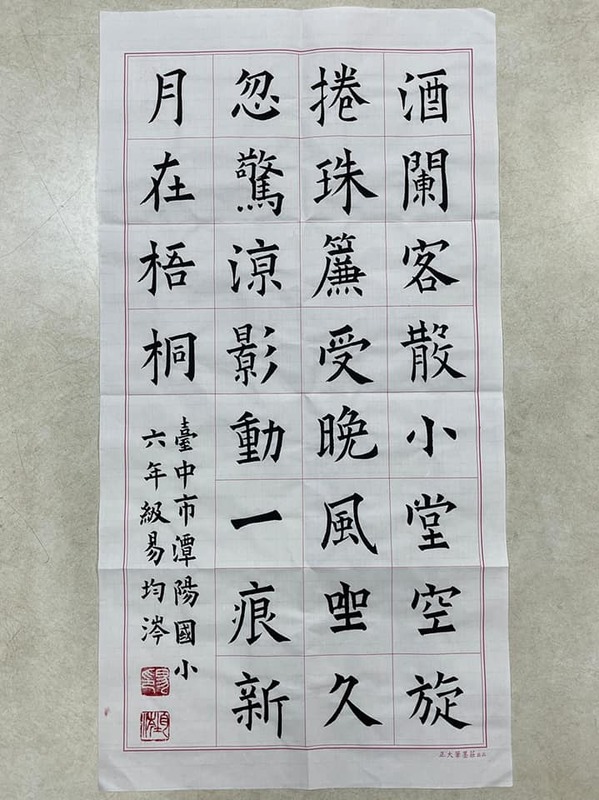 酒闌客散小堂空旋
捲珠簾受晚風坐久
忽驚涼影動一痕新
月在梧桐
臺中市潭陽國小
六年級易均涔
正大筆墨莊